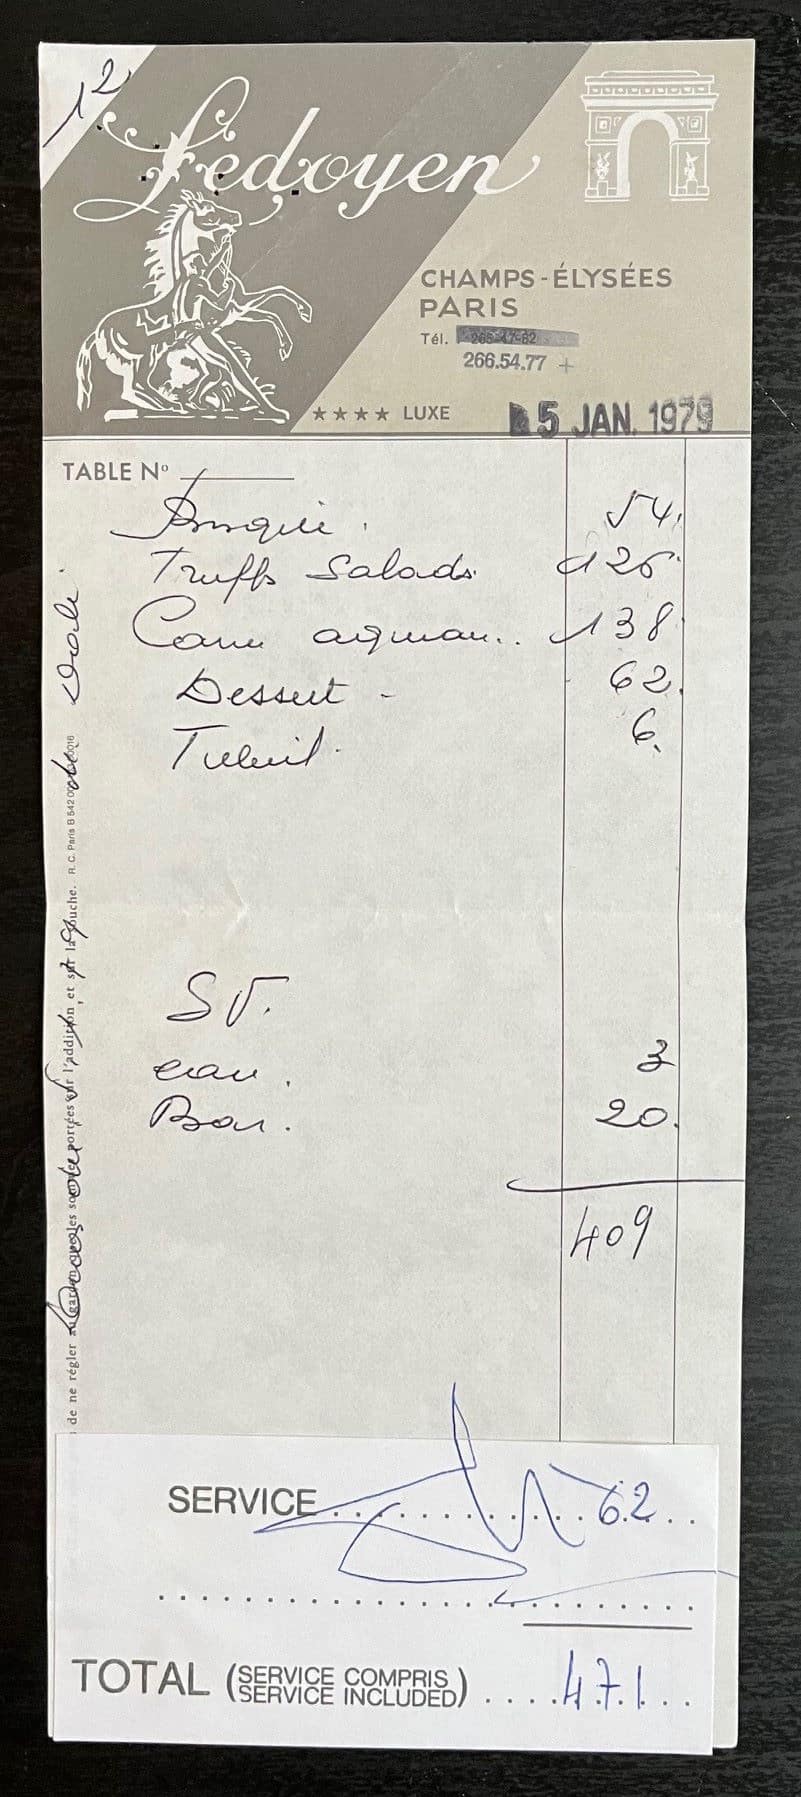 12
Ledoyen
CHAMPS-ÉLYSÉES
PARIS
Tél. 265-47-82
266.54.77 +
★★★★ LUXE
5 JAN. 1979
TABLE Nº
54.
Truffs Salads 126.
138.
Dessert - 62.
6.
SV.
eau. 3
Bar. 20.
409
de ne régler
les sommes portées sur l'addition, et sur la souche.
R. C. Paris B 542
SERVICE 62
TOTAL (SERVICE COMPRIS
SERVICE INCLUDED) 471